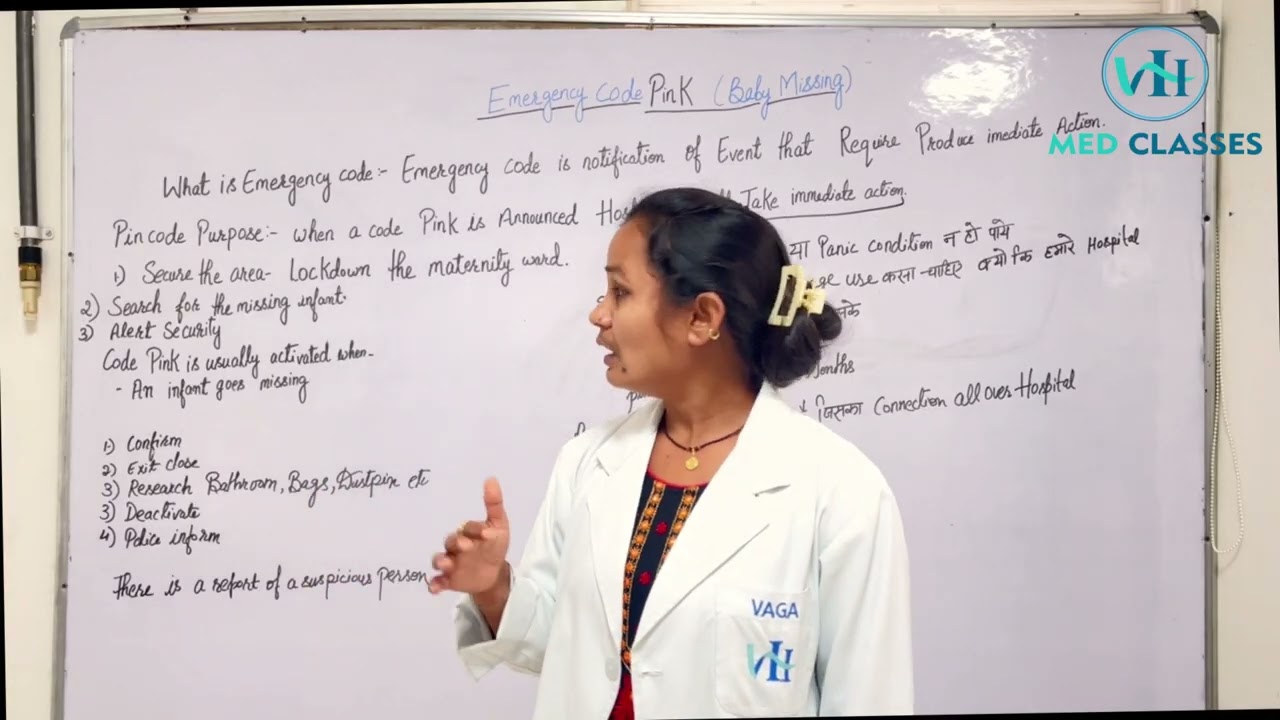 Emergency Code Pink (Baby Missing)
MED CLASSES
What is Emergency code:- Emergency code is notification of Event that Require Produce imediate Action.
Pincode Purpose:- when a code Pink is Announced Take immediate action.
1) Secure the area- Lockdown the maternity ward.
या Panic condition न हो पाये
2) Search for the missing infant.
use करना चाहिए क्योंकि हमारे Hospital
3) Alert Security
Code Pink is usually activated when-
- An infant goes missing
जिसका Connection all over Hospital
1) Confirm
2) Exit close
3) Research Bathroom, Bags, Dustpin etc
3) Deactivate
4) Police inform
There is a report of a suspicious person
VAGA